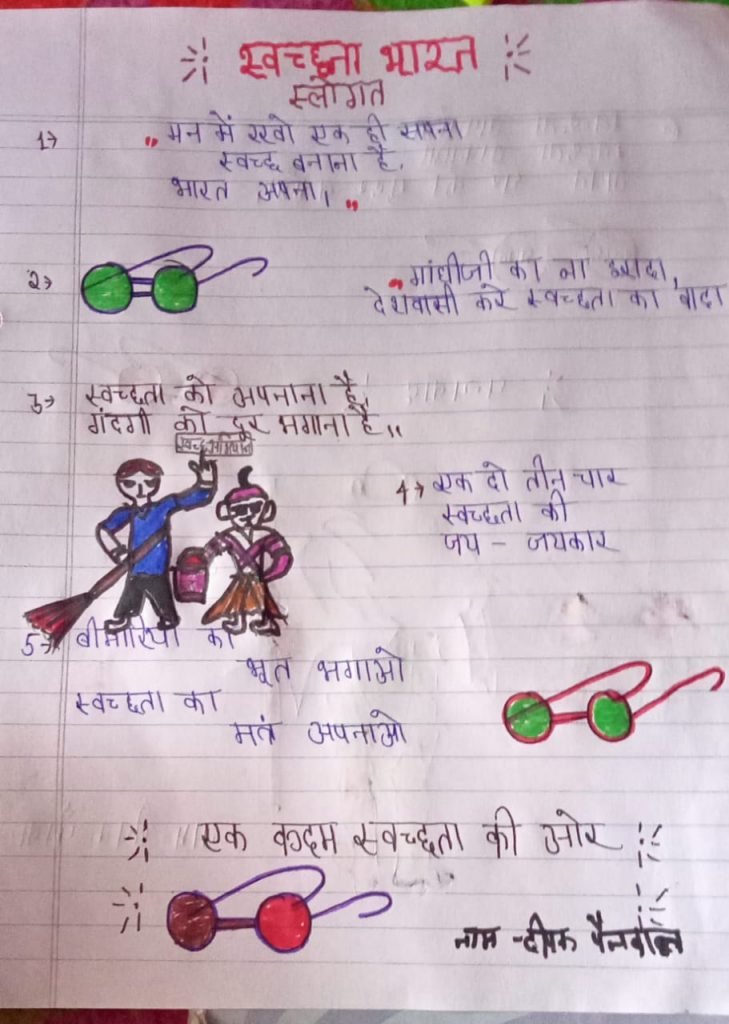 स्वच्छता भारत
स्लोगन
1→ "मन में रखो एक ही सपना
स्वच्छ बनाना है,
भारत अपना।"
2→ "गांधीजी का था इरादा,
देशवासी करे स्वच्छता का वादा
3→ स्वच्छता को अपनाना है,
गंदगी को दूर भगाना है,,
स्वच्छ
4→ एक दो तीन चार
स्वच्छता की
जय - जयकार
5→ बीमारियों का
भूत भगाओ
स्वच्छता का
मत्रं अपनाओ
एक कदम स्वच्छता की ओर
नाम - दीपक